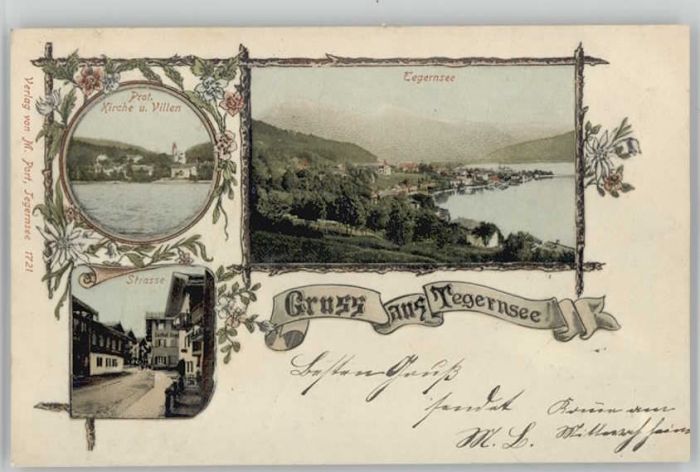 Verlag von M. Port, Tegernsee 1721
Prot.
Kirche u. Villen
Tegernsee
Strasse
Gruss aus Tegernsee!
Besten Gruß
sendet
M. L.
Komme am
Mittwoch heim